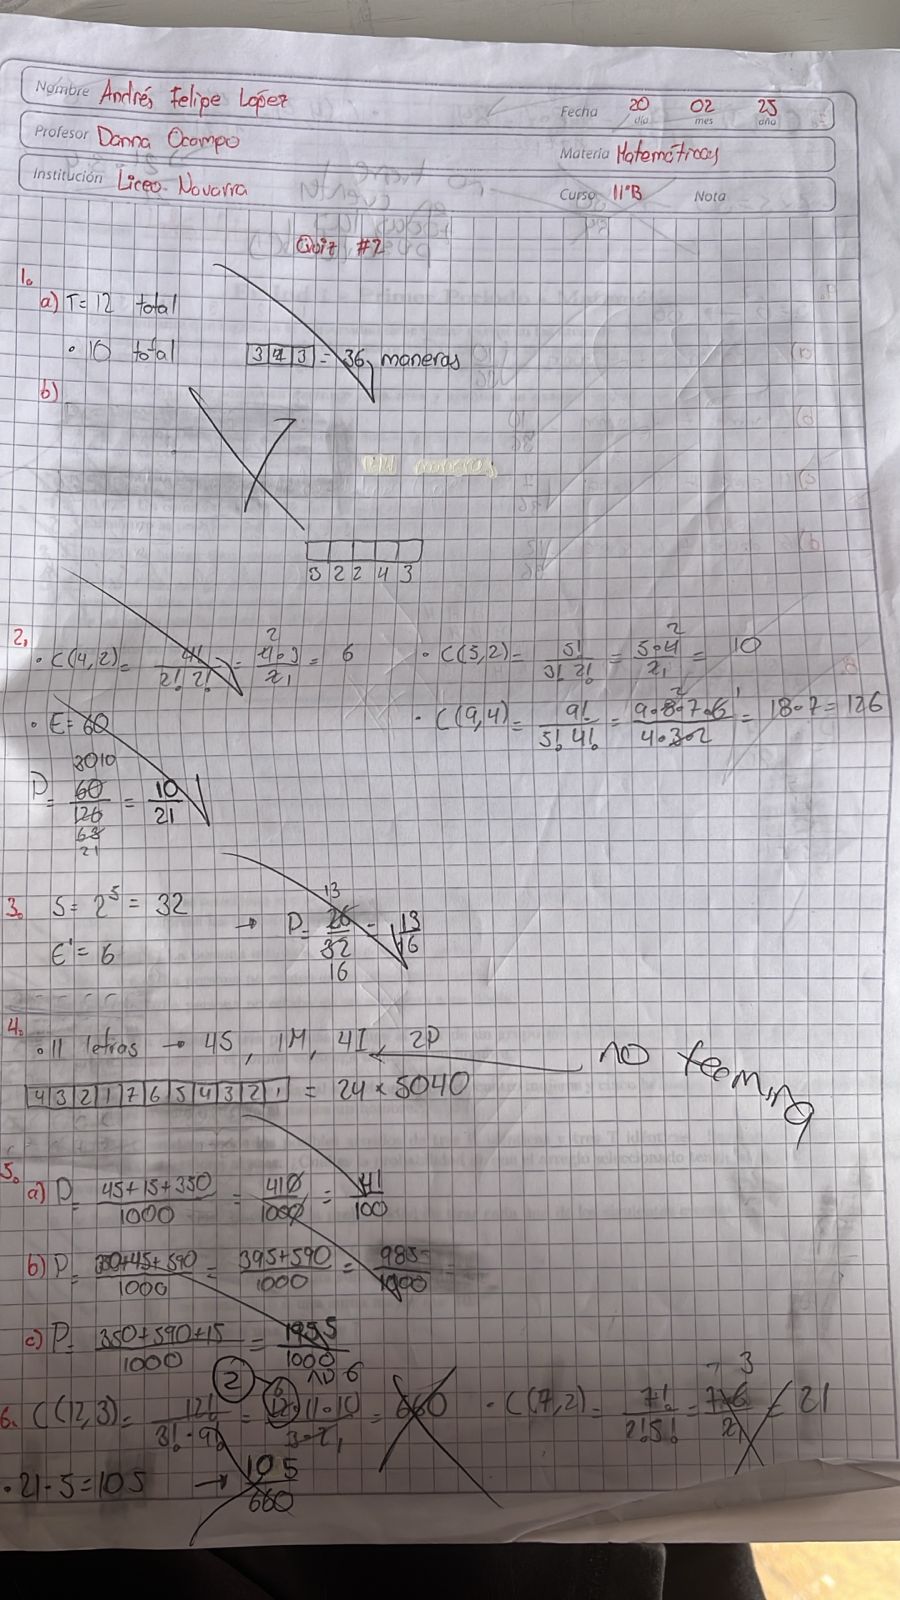 Nombre Andrés Felipe López
Fecha 20 02 25
día mes año
Profesor Danna Ocampo
Materia Matemáticas
Institución Liceo. Navarra
Curso 11°B Nota
Quiz #2
1.
a) T= 12 total
• 10 total 3 4 3 = 36, maneras
b)
maneras
3 2 2 4 3
2.
• C(4,2)= 4!/2! 2! = 4·3/2 = 6 • C(5,2)= 5!/3! 2! = 5·4/2 = 10
• E= 60 • C(9,4)= 9!/5! 4! = 9·8·7·6/4·3·2 = 18·7=126
30 10
P= 60/126 = 10/21
63
21
3. S= 2⁵ = 32 → P= 26/32 = 13/16
13
16
E'= 6
4.
• 11 letras → 4S, 1M, 4I, 2P no termino
4 3 2 1 7 6 5 4 3 2 1 = 24 × 5040
5.
a) P= 45+15+350/1000 = 410/1000 = 41/100
b) P= 350+45+590/1000 = 395+590/1000 = 985/1000 =
c) P= 350+590+15/1000 = 1955/1000
2 no 6
6. C(12,3)= 12!/3!·9! = 12·11·10/3·2 = 660 • C(7,2)= 7!/2!5! = 7·6/2 = 21
• 21·5=105 → 105/660